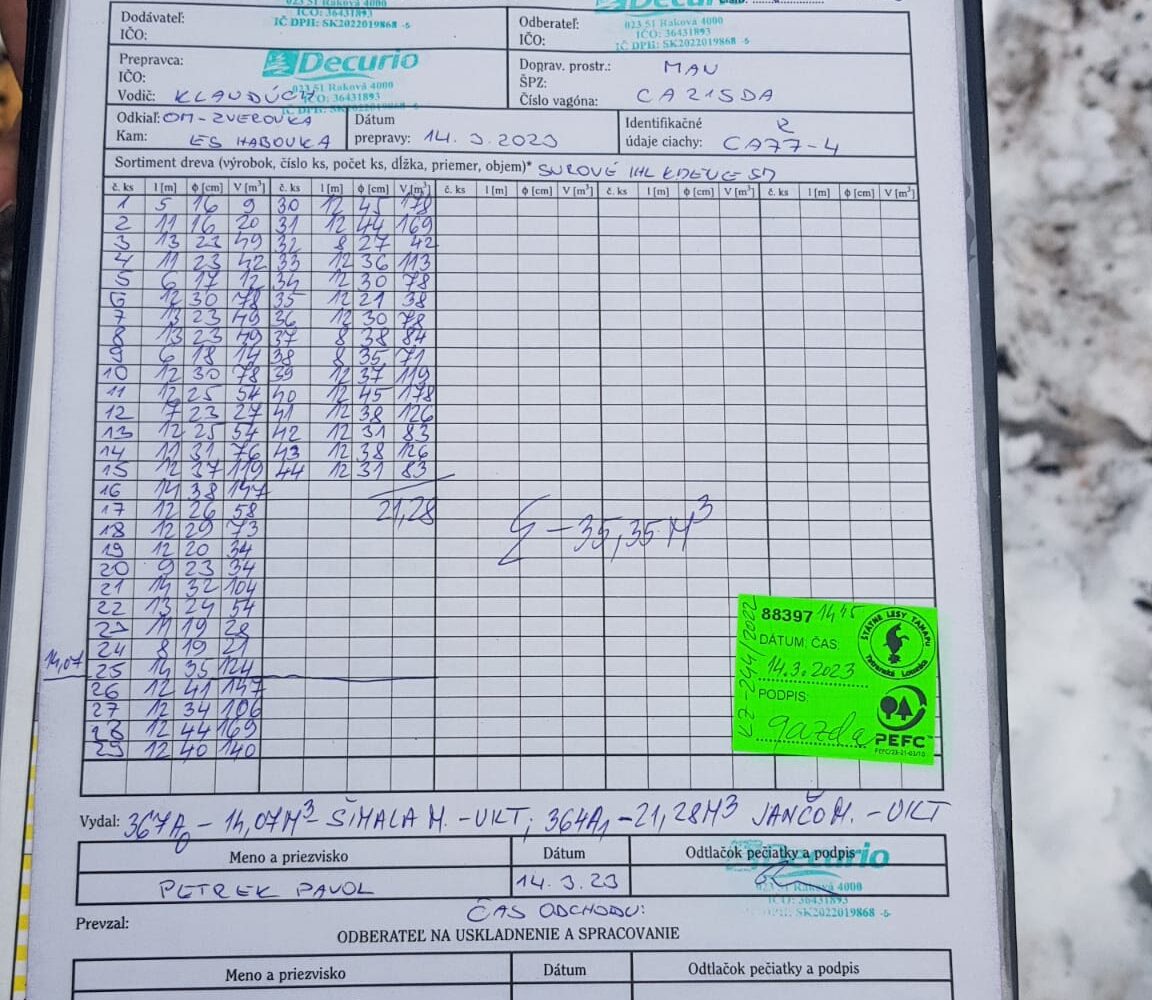 023 51 Raková 4000
IČO: 36431893
IČ DPH: SK2022019868 -5-
Decurio
023 51 Raková 4000
IČO: 36431893
IČ DPH: SK2022019868 -5-
Dodávateľ:
IČO:
Odberateľ:
IČO:
Prepravca:
IČO:
Vodič: KLAUDÚCH
Decurio
023 51 Raková 4000
IČO: 36431893
IČ DPH: SK2022019868 -5-
Doprav. prostr.: MAN
ŠPZ:
Číslo vagóna: CA215DA
Odkiaľ: OM-ZVEROVKA
Kam: ES HABOVKA
Dátum
prepravy: 14.3.2023
Identifikačné R
údaje ciachy: CA77-4
Sortiment dreva (výrobok, číslo ks, počet ks, dĺžka, priemer, objem)* SUROVÉ IHL KMEŇE
č. ks l [m] ϕ [cm] V [m³] č. ks l [m] ϕ [cm] V [m³] č. ks l [m] ϕ [cm] V [m³] č. ks l [m] ϕ [cm] V [m³] č. ks l [m] ϕ [cm] V [m³]
1 5 16 9 30 12 45 178
2 11 16 20 31 12 44 169
3 13 23 49 32 8 27 42
4 11 23 42 33 12 36 113
5 6 17 12 34 12 30 78
6 12 30 78 35 12 21 38
7 13 23 49 36 12 30 78
8 13 23 49 37 8 38 84
9 6 18 14 38 8 35 71
10 12 30 78 39 12 37 119
11 12 25 54 40 12 45 178
12 7 23 27 41 12 38 126
13 12 25 54 42 12 31 83
14 11 31 76 43 12 38 126
15 12 37 119 44 12 31 83
16 14 38 147
17 12 26 58 21,28
18 12 29 73
19 12 20 34
20 9 23 34
21 14 32 104
22 13 24 54
23 11 19 28
24 8 19 21
14,07 25 14 35 124
26 12 41 147
27 12 34 106
28 12 44 169
29 12 40 140
Σ - 35,35 M³
88397 14 45
DÁTUM, ČAS:
14.3.2023
PODPIS:
gazda
KZ-244/2022
ŠTÁTNE LESY TANAPU
Tatranská Lomnica
PEFC
Vydal: 367A0 - 14,07M³ - ŠIMALA M. - UKT; 364A1 - 21,28M³ JANČO M. - UKT
Meno a priezvisko Dátum Odtlačok pečiatky a podpis
PETREK PAVOL 14.3.23
Decurio
023 51 Raková 4000
IČO: 36431893
IČ DPH: SK2022019868 -5-
ČAS ODCHODU:
Prevzal:
ODBERATEĽ NA USKLADNENIE A SPRACOVANIE
Meno a priezvisko Dátum Odtlačok pečiatky a podpis